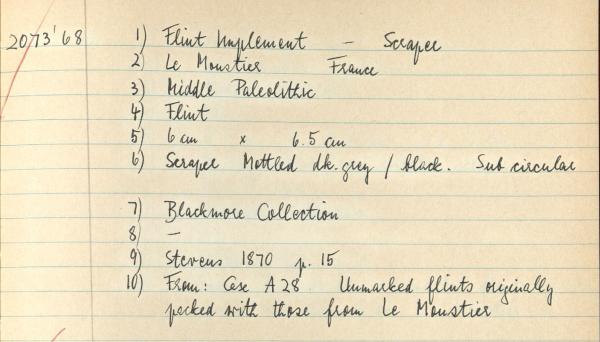 2073'68 1) Flint Implement – Scraper
2) Le Moustier France
3) Middle Paleolithic
4) Flint
5) 6 cm x 6.5 cm
6) Scraper Mottled dk. grey / black. Sub circular
7) Blackmore Collection
8) –
9) Stevens 1870 p. 15
10) From: Case A 28 Unmarked flints originally
packed with those from Le Moustier